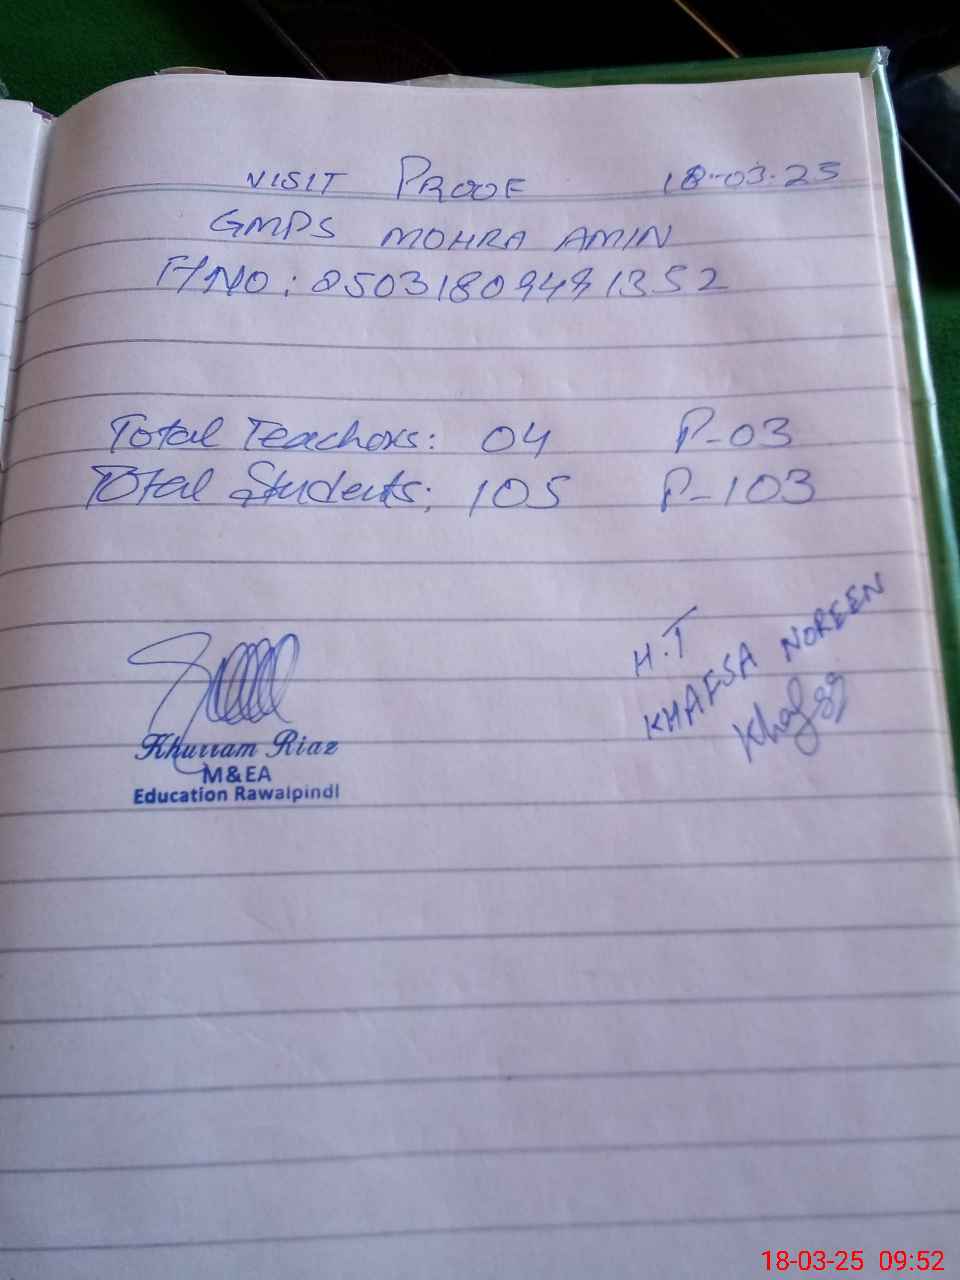 VISIT PROOF 18-03-25
GMPS MOHRA AMIN
Total Teachers: 04 P-03
Total Students: 105 P-103
H.T
KHAFSA NOREEN
Khafsa
Khurram Riaz
M&EA
Education Rawalpindi
18-03-25 09:52